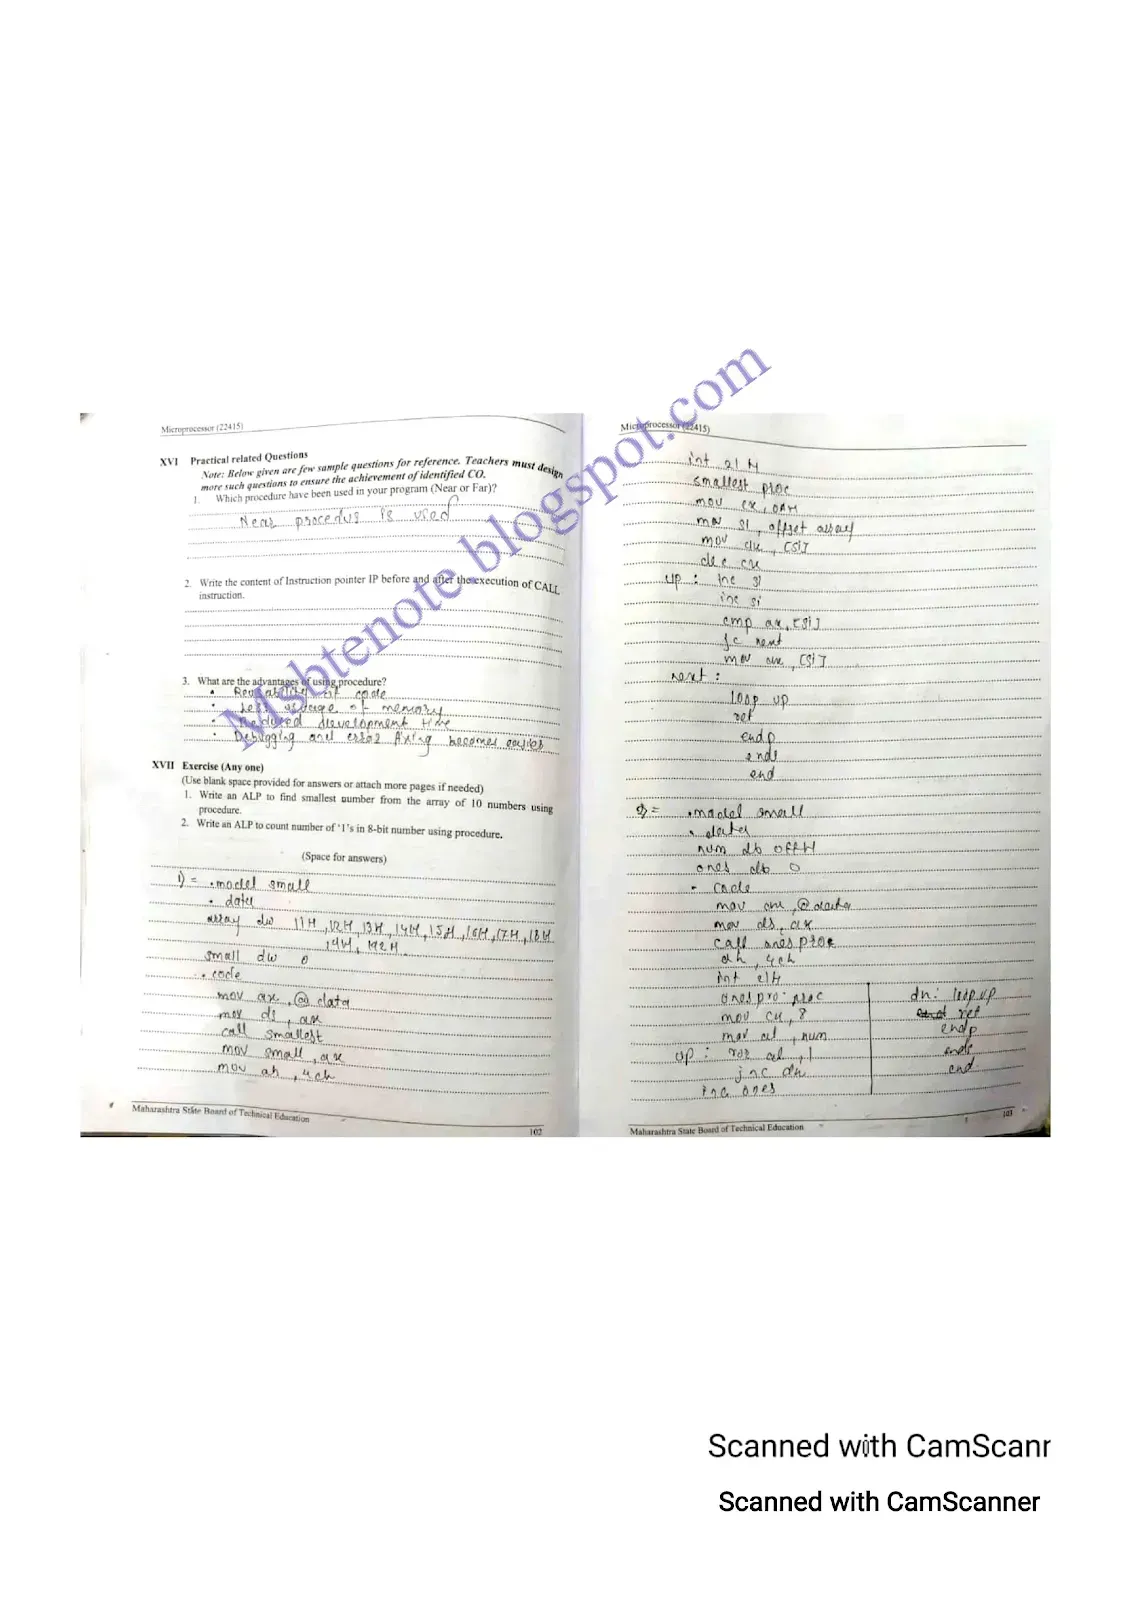 Microprocessor (22415)
XVI Practical related Questions
Note: Below given are few sample questions for reference. Teachers must design
more such questions to ensure the achievement of identified CO.
1. Which procedure have been used in your program (Near or Far)?
Near procedus is used
2. Write the content of Instruction pointer IP before and after the execution of CALL
instruction.
3. What are the advantages of using procedure?
• Reusability of code
• Less usage of memory
• Reduced development time
• Debugging and error fixing becomes easier
XVII Exercise (Any one)
(Use blank space provided for answers or attach more pages if needed)
1. Write an ALP to find smallest number from the array of 10 numbers using
procedure.
2. Write an ALP to count number of '1's in 8-bit number using procedure.
(Space for answers)
1) = .model small
. data
array dw 11H, 12H, 13H, 14H, 15H, 16H, 17H, 18H
small dw 0
. code
mov ax, @data
mov ds, ax
call smallest
mov small, ax
mov ah, 4ch
Maharashtra State Board of Technical Education
102
Microprocessor (22415)
int 21 H
smallest proc
mov cx, 0AH
mov si, offset array
mov ax, [si]
dec cx
up : inc si
inc si
cmp ax, [si]
jc next
mov ax, [si]
next :
loop up
ret
endp
ends
end
2) = .model small
. data
num db 0FFH
ones db 0
. code
mov ax, @data
mov ds, ax
call ones proc
ah, 4ch
int 21H
ones pro: proc
mov cx, 8
mov al, num
up : ror al, 1
jnc dn
inc ones
dn: loop up
ret
endp
ends
end
Maharashtra State Board of Technical Education
103
Msbtenote.blogspot.com
Scanned with CamScanr
Scanned with CamScanner